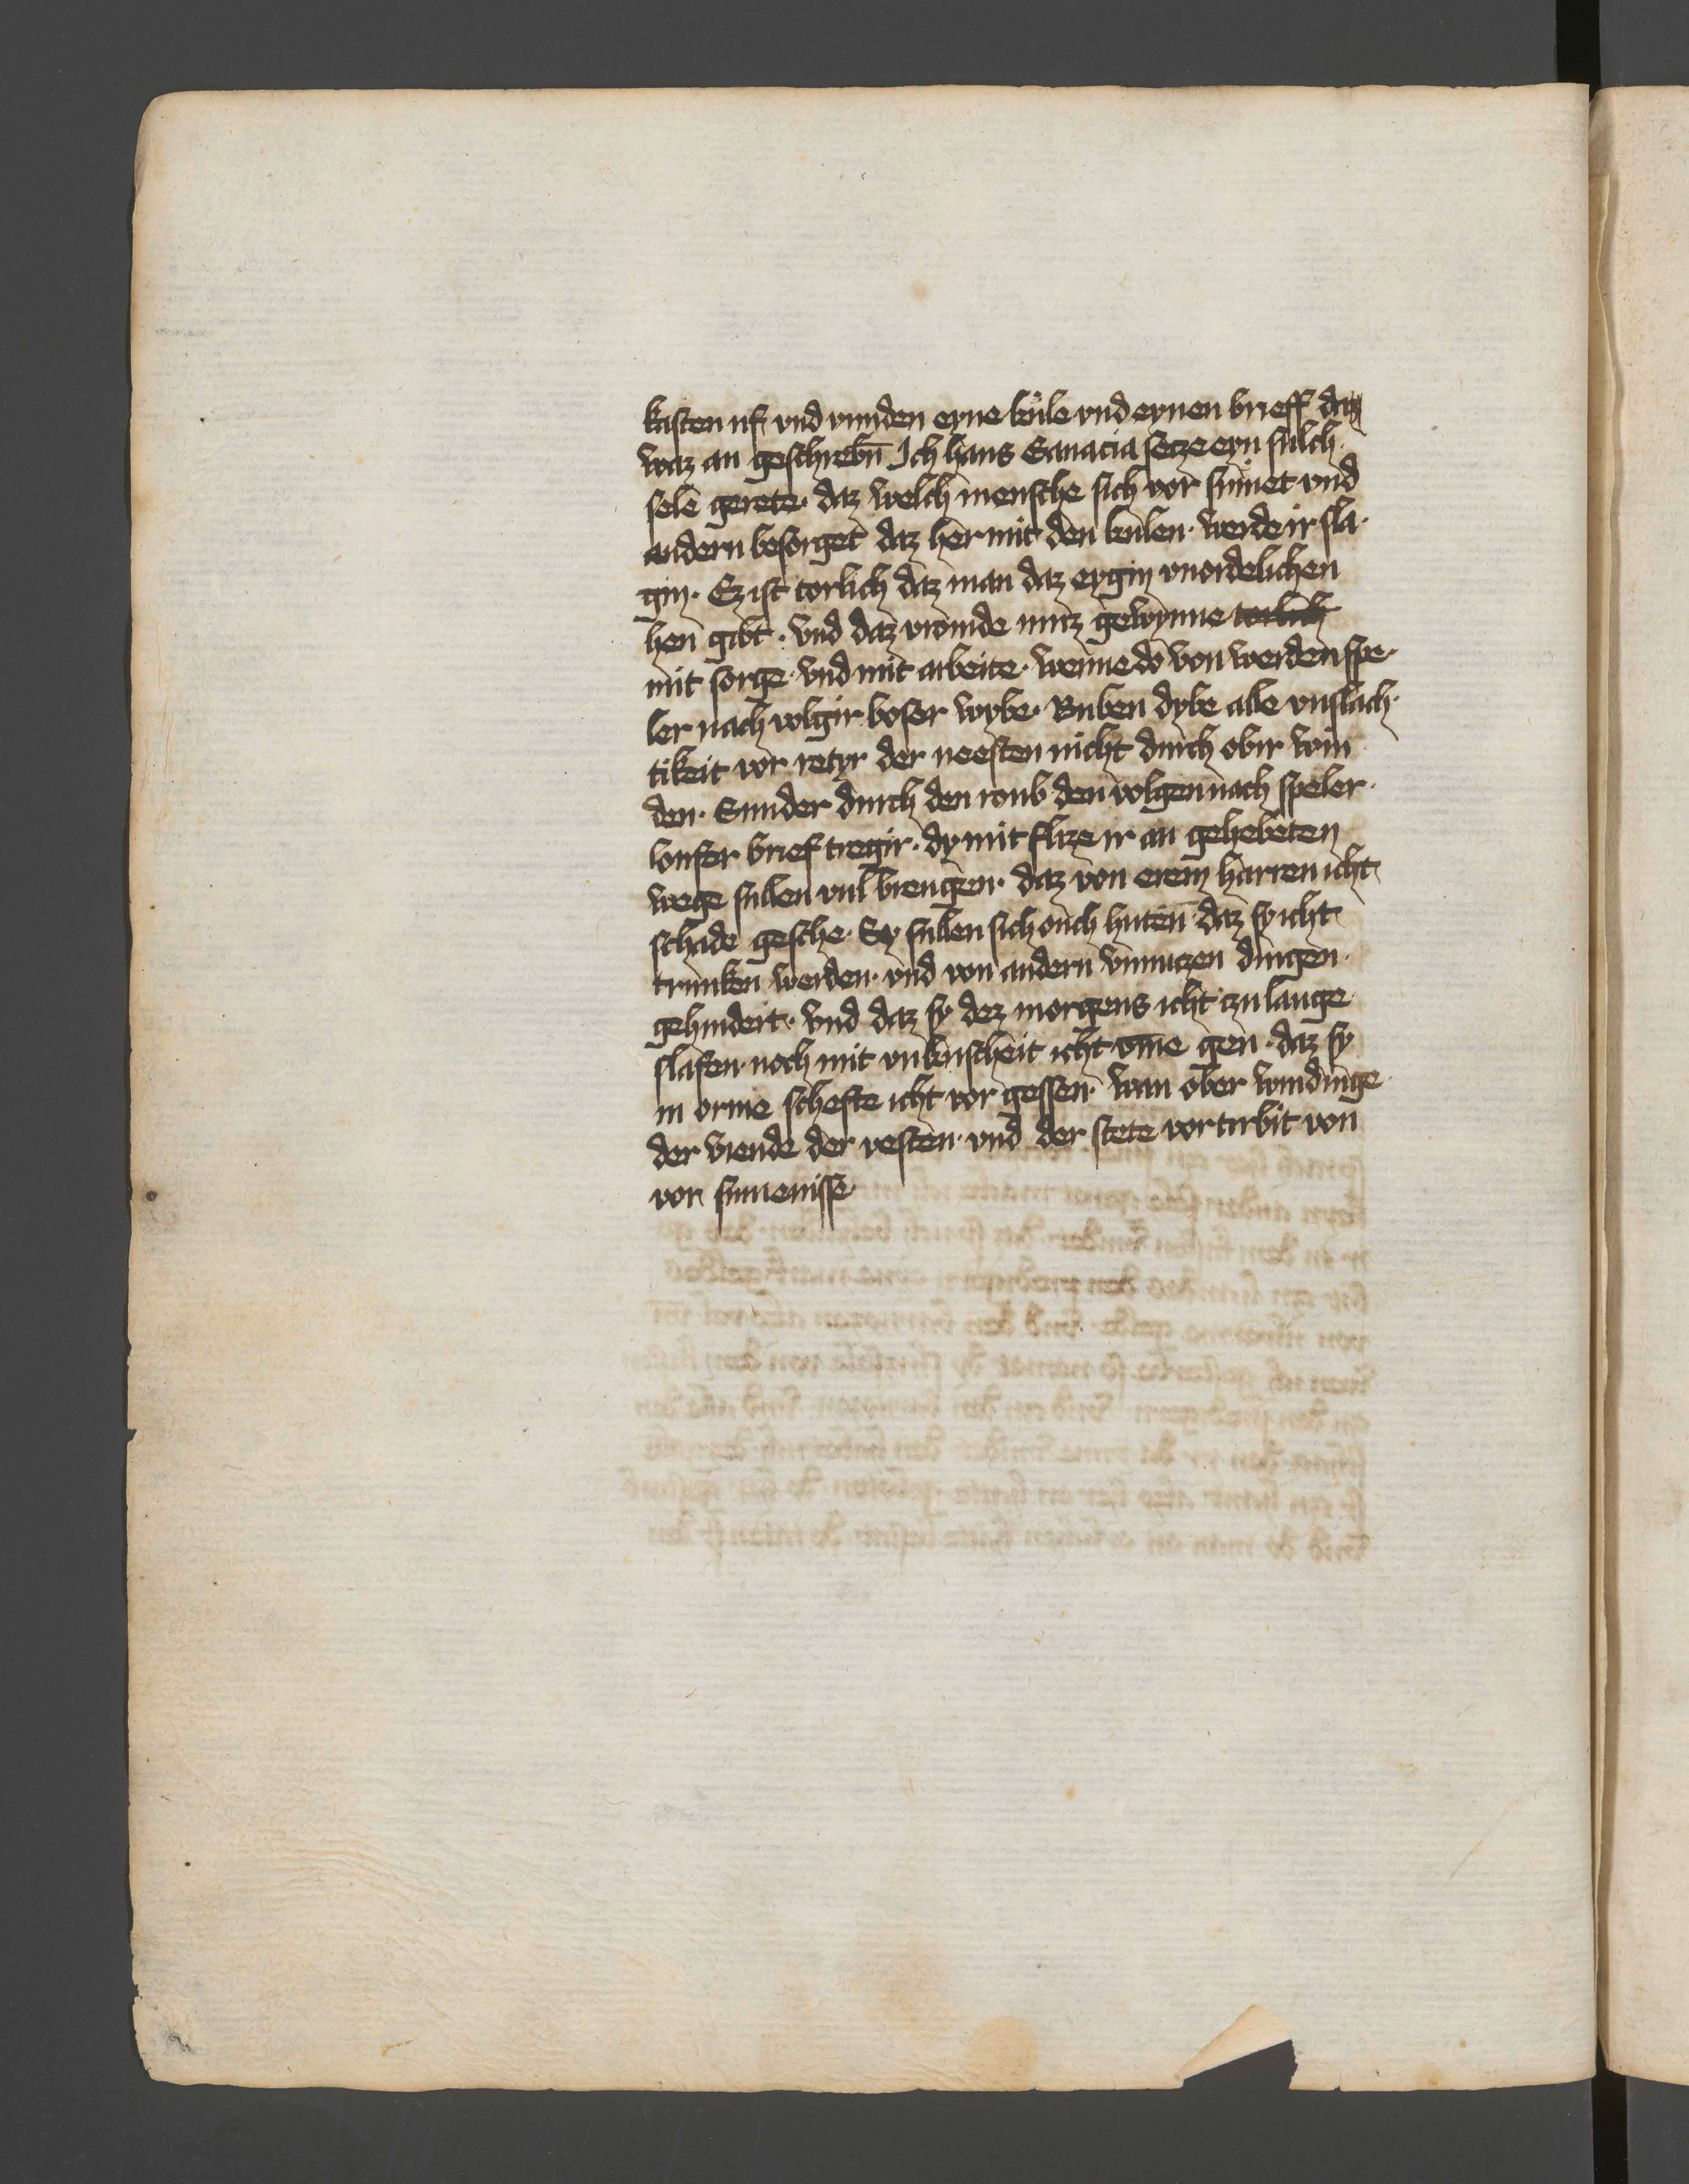 kasten uf vnd vunden eyne kule vnd eynen brieff daz
waz an geschrebn̄ Ich hans Ganacia secze eyn sulch
selē gerete· daz welch mensche sich vor sumet vnd
andern besorget daz her mit den kulen· werde ir sla·
gin· Ez ist torlich daz man daz eygin vnordelichen
hen gibt· vnd daz vromde nucz gewynne torlich
mit sorge· vnd mit arbeite· wenne do von werden spe·
ler nach volgir boser wybe· Buben dybe alle vnslach·
tikeit vor retyr der neesten nicht durch obir win
den· Sunder durch den roub den volgen nach speler·
loufer brief tregir· dy mit flize ir an gehebeten
wege sullen vul brengen· daz von erem harren icht
schade gesche· Sy sullen sich ouch huten· daz sy icht
trunken werden· vnd von andern vnnuczen dingen·
gehindert· vnd daz sy dez morgens icht czu lange
slafen· noch mit vnkuscheit icht vm̄e gen· daz sy
in orme schefte icht vor gessen· wan ober windunge
der viende der vesten· vnd der stete vorturbit von
vor sumenisse